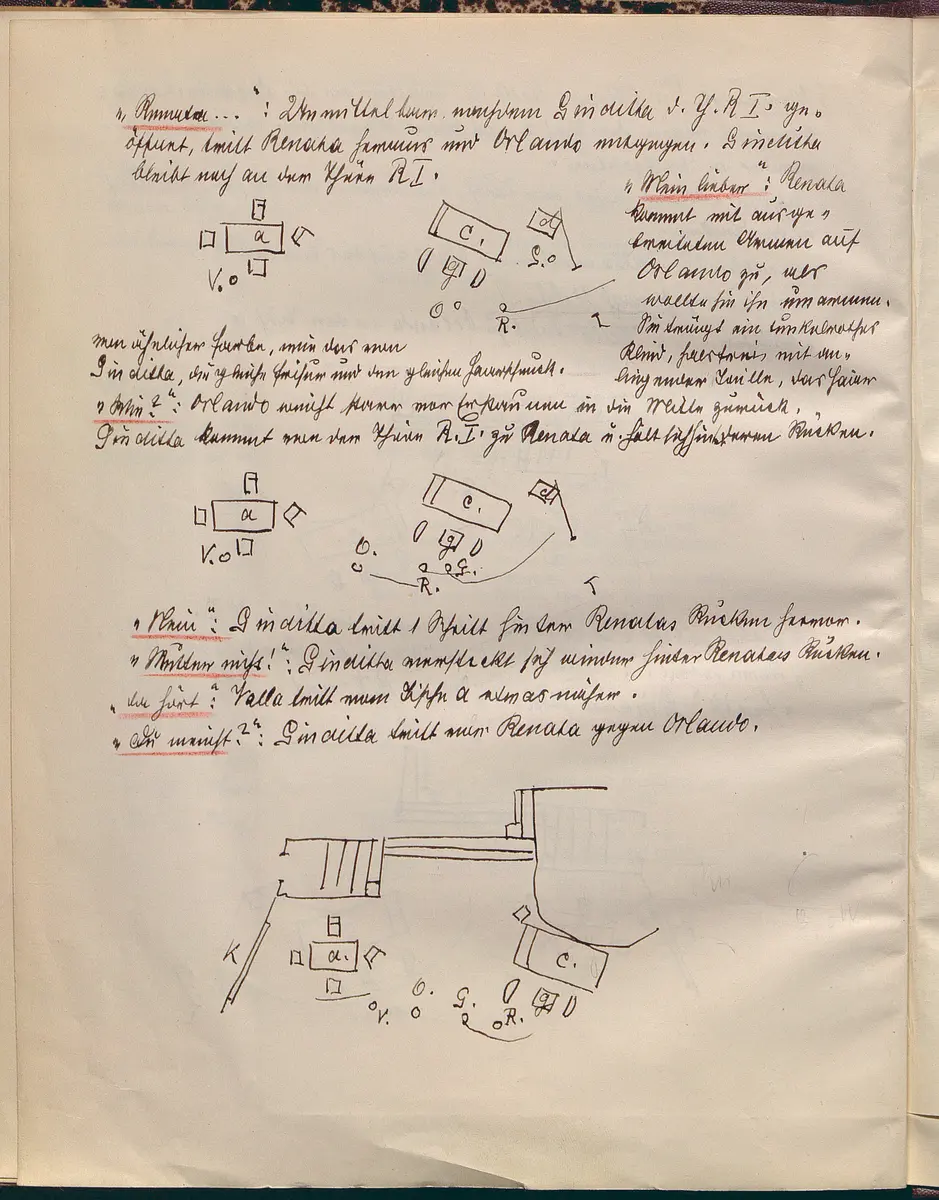 „Renata ...“: Unmittelbar nachdem Giuditta d. Th. R I. ge-
öffnet, tritt Renata heraus und Orlando entgegen. Giuditta
bleibt noch an der Thüre R I.
„Mein lieber“: Renata
kommt mit ausge-
breiteten Armen auf
Orlando zu, als
wollte sie ihn umarmen.
Sie trägt ein dunkelrothes
Kleid, halsfrei, mit an-
liegender Taille, das Haar
a
V.
c.
d
g
G.
O
R.
von ähnlicher Farbe, wie das von
Giuditta, die gleiche Frisur und den gleichen Haarschmuck.
„Wie?“: Orlando weicht starr vor Erstaunen in die Mitte zurück.
Giuditta kommt von der Thüre R. I. zu Renata u. hält sich hinter deren Rücken.
a
V.
c.
d
g
O.
G.
R.
„Nein“: Giuditta tritt 1 Schritt hinter Renatas Rücken hervor.
„Mutter nicht!“: Giuditta versteckt sich wieder hinter Renatas Rücken.
„da hört“: Valla tritt vom Tische a etwas näher.
„Du weicht?“: Giuditta tritt vor Renata gegen Orlando.
K
a.
c.
O.
G.
g
V.
R.